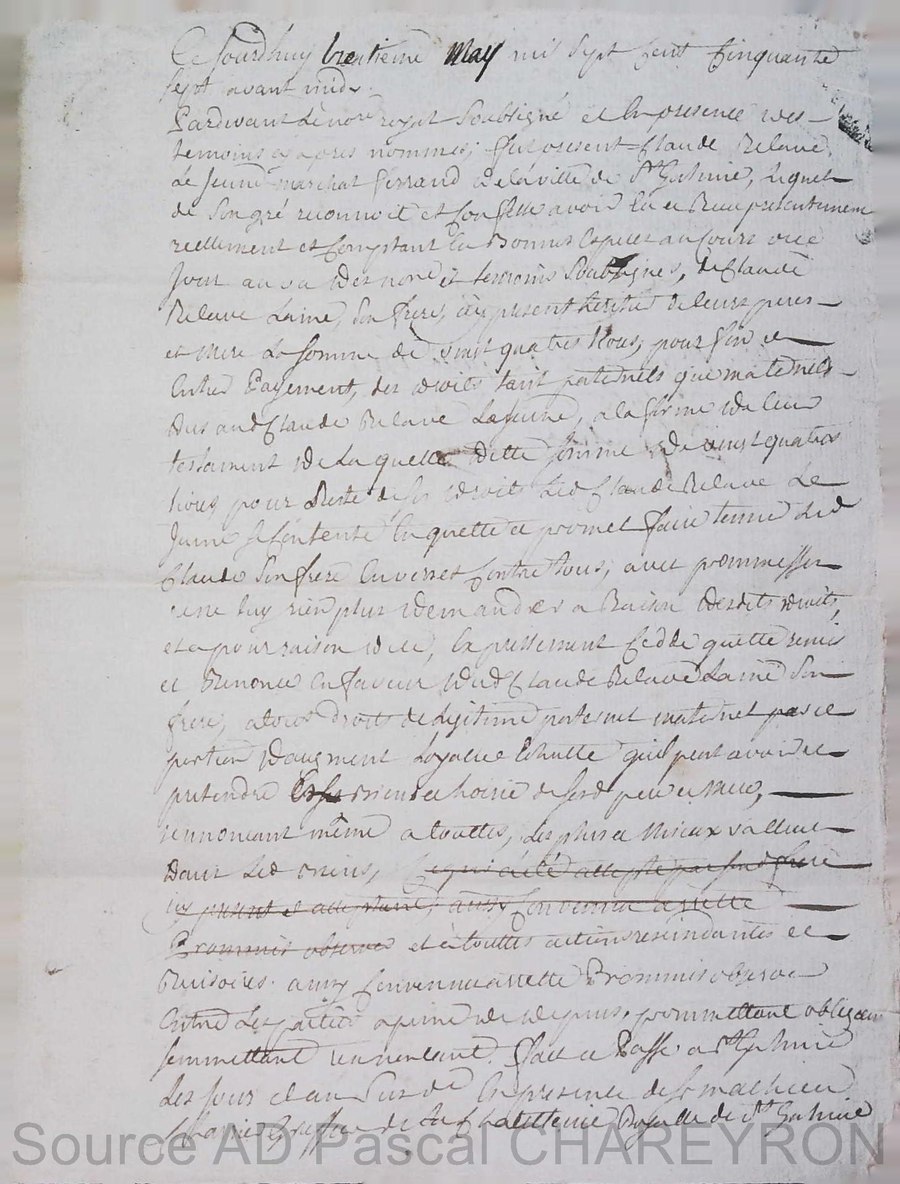 Ce Jourdhuy trentieme May mil sept Cent Cinquante
sept avant midy
Pardevant Le nore royal Soubsigné et En presence des
temoins cy apres nommes, fut present Claude Relave
Le Jeune marchat de la ville de St Galmier, Lequel
de Son gré reconnoit et Confesse avoir Eu et Receu presentement
reellement et Comptant En Bonnes Especes au Cours de ce
Jour au vu des nore et temoins Soubsignes, de Claude
Relave Laine, Son frere, icy present heritier de leurs peres
et mere La Somme de vingt quatres livres, pour fin et
Entier Payement, des droits tant paternels que maternels
Dus aud Claude Relave Lejeune, a la forme de leur
testament de Laquelle ditte Somme de vingt quatres
livres pour Reste de ses droits Led Claude Relave Le
Jeune se Contente En quitte et promet faire tenir led
Claude Son frere Envers et Contre tous, avec prommesse
de ne luy rien plus demander a Raison desdits droits,
et a pour raison de ce, Expressement Cedde quitte remis
et Renonce En faveur dud Claude Relave Laine Son
frere, a tous droits de Legitime paternel maternel part et
portion daugment Loyalle Echutte quil peut avoir et
pretendre biens et hoirie de sesd pere et mere,
rennoncant même a touttes, Les plus et mieux vallent
Dans Lesd biens, Ce qui a eté accepté par sond frere
icy present et acceptant, aussy Convenu arretté
Prommis observer et a touttes actions rescindantes et
Rescisoires. ainsy Convenu arretté Prommis observer
Entre Les parties a peine de depens. promettant obligeant
soummettant rennoncant. Fait et Passé a St Galmier
Les Jour et an Sus dit En presence de Sr mathieu
greffier de La Chatellenie Royalle de St Galmier
Source AD Pascal CHAREYRON